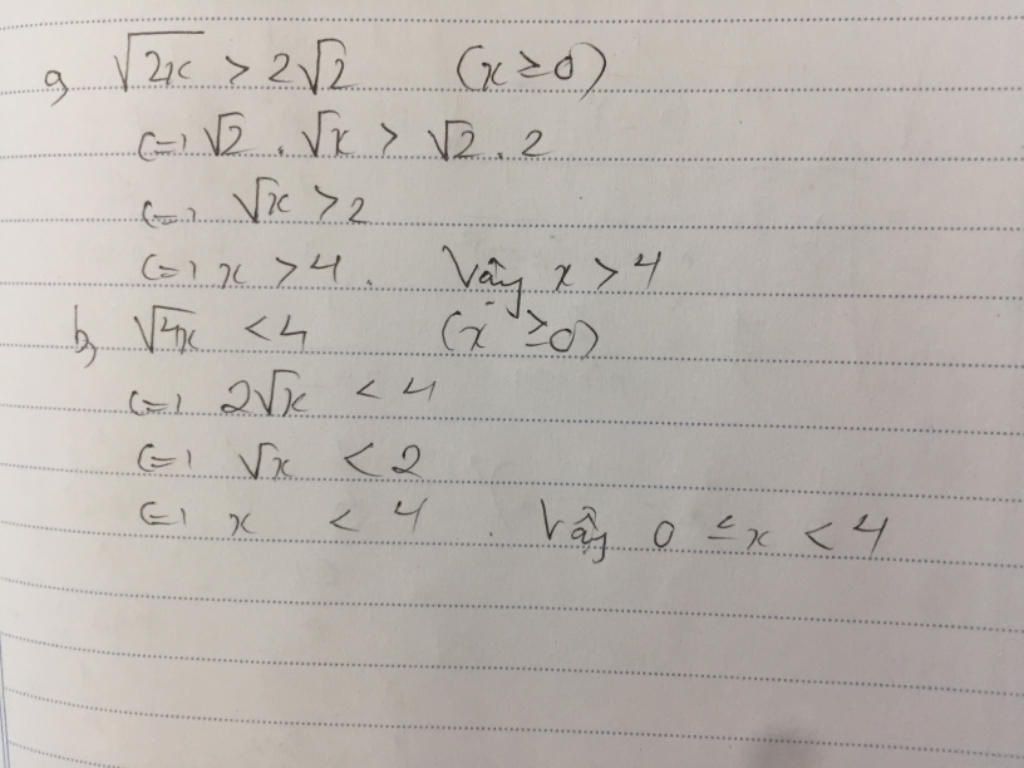 a, √2x > 2√2 (x ≥ 0)
<=> √2 . √x > √2 . 2
<=> √x > 2
<=> x > 4 . Vậy x > 4
b, √4x < 4 (x ≥ 0)
<=> 2√x < 4
<=> √x < 2
<=> x < 4 . Vậy 0 ≤ x < 4